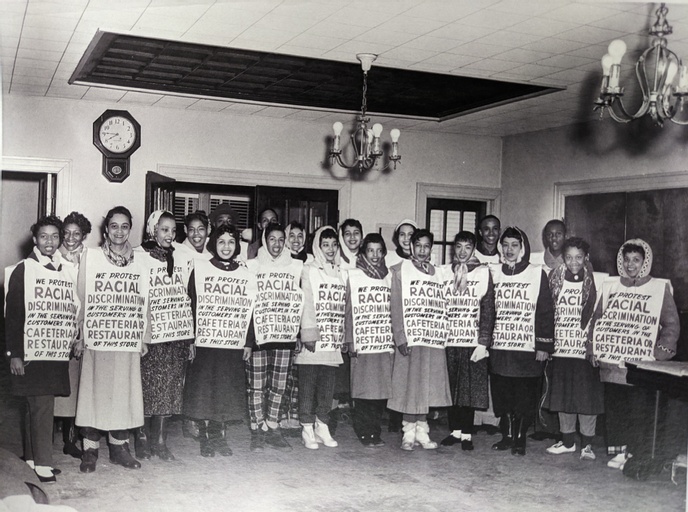 WE PROTEST
RACIAL
DISCRIMINATION
IN THE SERVING OF
CUSTOMERS IN THE
CAFETERIA OR
RESTAURANT
OF THIS STORE
WE PROTEST
RACIAL
DISCRIMINATION
IN THE SERVING OF
CUSTOMERS IN THE
CAFETERIA OR
RESTAURANT
OF THIS STORE
RACIAL
SERVING OF
IN THE
CAFETERIA
RESTAURANT
WE PROTEST
RACIAL
DISCRIMINATION
IN THE SERVING OF
CUSTOMERS IN THE
CAFETERIA OR
RESTAURANT
OF THIS STORE
WE PROTEST
RACIAL
DISCRIMINATION
IN THE SERVING OF
CUSTOMERS IN THE
CAFETERIA OR
RESTAURANT
OF THIS STORE
RACIAL
DISCRIMINATION
IN THE SERVING OF
CUSTOMERS IN THE
CAFETERIA OR
RESTAURANT
OF THIS STORE
WE PROTEST
RACIAL
DISCRIMINATION
IN THE SERVING OF
CUSTOMERS IN THE
CAFETERIA OR
RESTAURANT
OF THIS STORE
WE PROTEST
RACIAL
DISCRIMINATION
IN THE SERVING OF
CUSTOMERS IN THE
CAFETERIA OR
RESTAURANT
OF THIS STORE
WE PROTEST
RACIAL
RESTAURANT
OF THIS STORE
WE PROTEST
RACIAL
DISCRIMINATION
IN THE SERVING OF
CUSTOMERS IN THE
CAFETERIA OR
RESTAURANT
OF THIS STORE
WE PROTEST
RACIAL
RESTAURANT
OF THIS STORE
WE PROTEST
RACIAL
DISCRIMINATION
IN THE SERVING OF
CUSTOMERS IN THE
CAFETERIA OR
RESTAURANT
OF THIS STORE